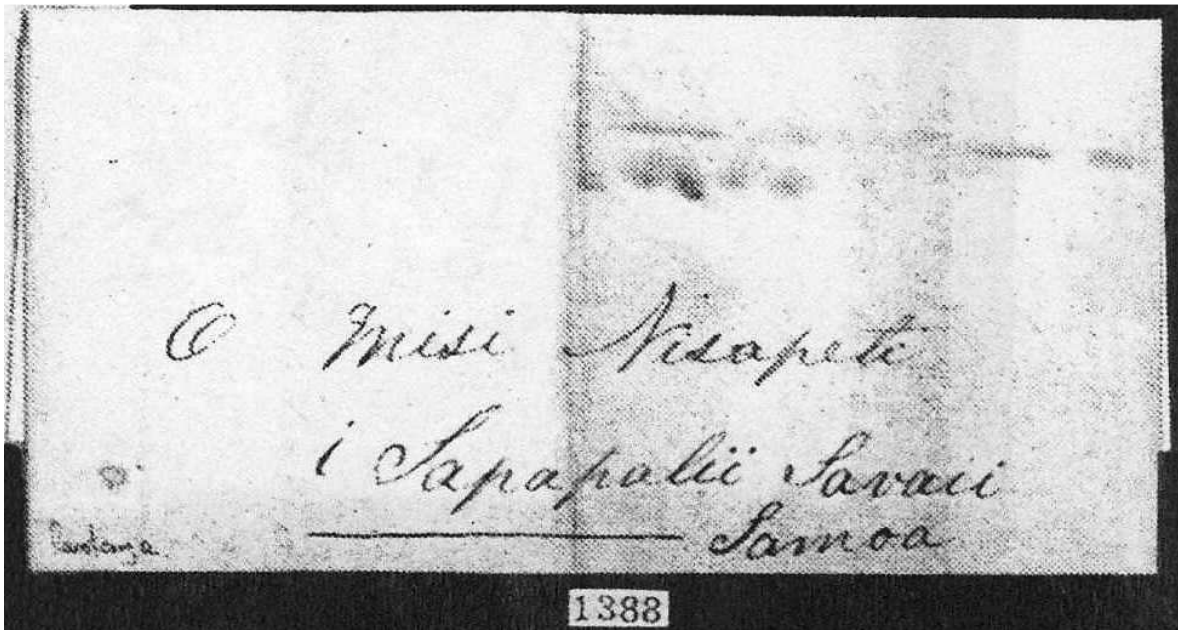 O Misi Nisapeti
i Sapapalii Savaii
Samoa
1388